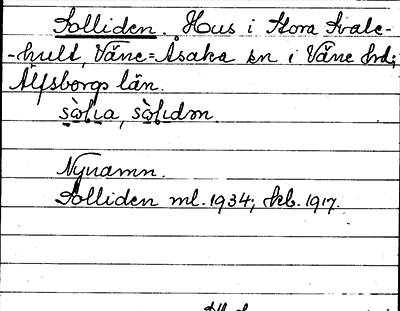 Solliden. Hus i Stora Svale-
-hult, Väne-Åsaka sn i Väne hd;
Älfsborgs län.
sòlia, sòlidən.
Nynamn.
Solliden ml. 1934; kb. 1917.